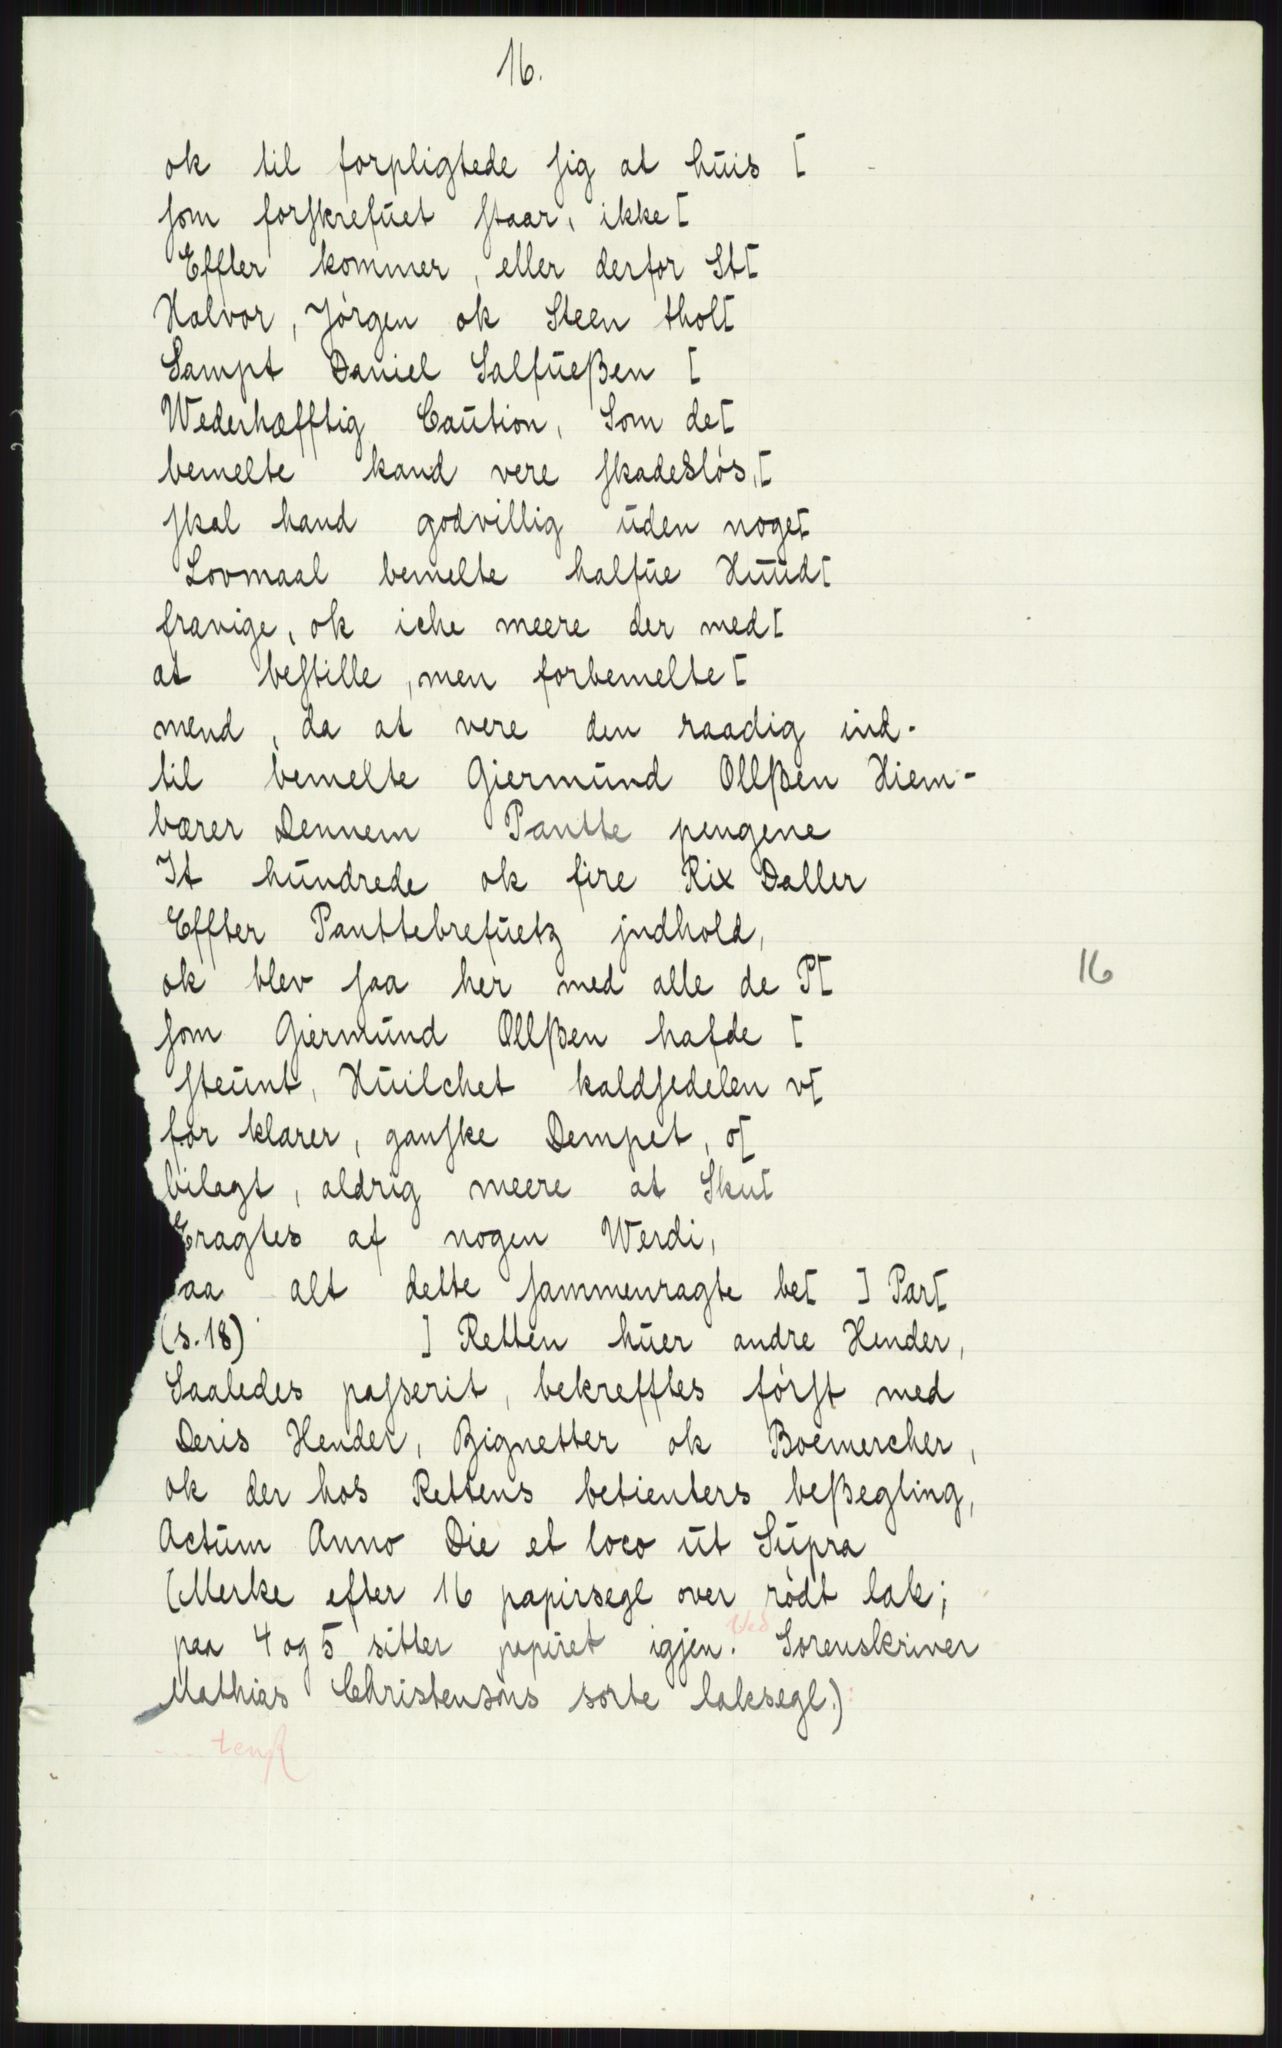 16.
ok til forpligtede sig at huis [
som forskrefuet staar, ikke [
Effter kommer, eller derfor St[
Halvor, Jörgen ok Steen thol[
Sampt Daniel Salfueßen [
Wederhæfftig Caution, Som de[
bemelte kand vere skadesløs,[
skal hand godvillig uden noge[
Lovmaal bemelte halfue Huud[
fravige, ok iche meere der med[
at bestille, men forbemelte[
mend, da at vere den raadig ind-
til bemelte Giermund Ollßen Hiem-
bærer Dennem Pantte pengene
It hundrede ok fire Rix Daller
Effter Panttebrefuetz jndhold,
ok blev saa her med alle de P[
16
som Giermund Ollßen hafde [
steunt, Huilchet kaldsedelen v[
for klarer, ganske Dempet, o[
bilagt, aldrig meere at Sku[
Eragtes af nogen Werdi,
aa alt dette sammenragte be[ ] Par[
(s. 18) ] Retten huer andre Hender,
Saaledes passerit, bekrefftes først med
Deris Hender, Zignetter ok Boemercher,
ok der hos Rettens betienters beßegling,
Actum Anno Die et loco ut Supra
(Merke efter 16 papirsegl over rødt lak;
paa 4 og 5 sitter papiret igjen. Ved Sorenskriver
Mathias Christensøns sorte laksegl.)